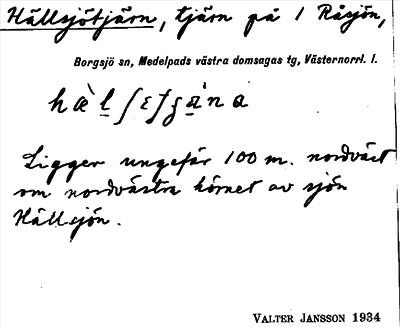 Hällsjötjärn, tjärn på 1 Råsjön,
Borgsjö sn, Medelpads västra domsagas tg, Västernorrl. l.
Ligger ungefär 100 m. nordväst
om nordvästra hörnet av sjön
Hällsjön.
VALTER JANSSON 1934